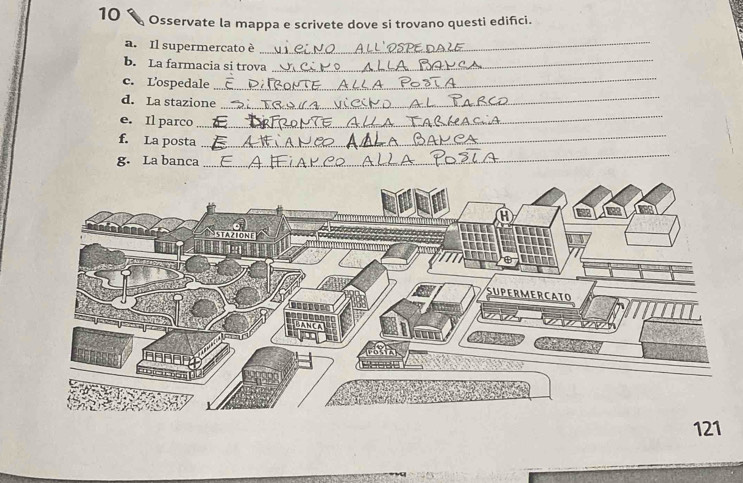 10 Osservate la mappa e scrivete dove si trovano questi edifici.
a. Il supermercato è VICINO ALL'OSPEDALE
b. La farmacia si trova VICINO ALLA BANCA
c. L'ospedale È DIFRONTE ALLA POSTA
d. La stazione SI TROVA VICINO AL PARCO
e. Il parco È DIFRONTE ALLA FARMACIA
f. La posta E AFFIANCO ALLA BANCA
g. La banca E AFFIANCO ALLA POSTA
H
STAZIONE
SUPERMERCATO
BANCA
FARMACIA
POSTA
121